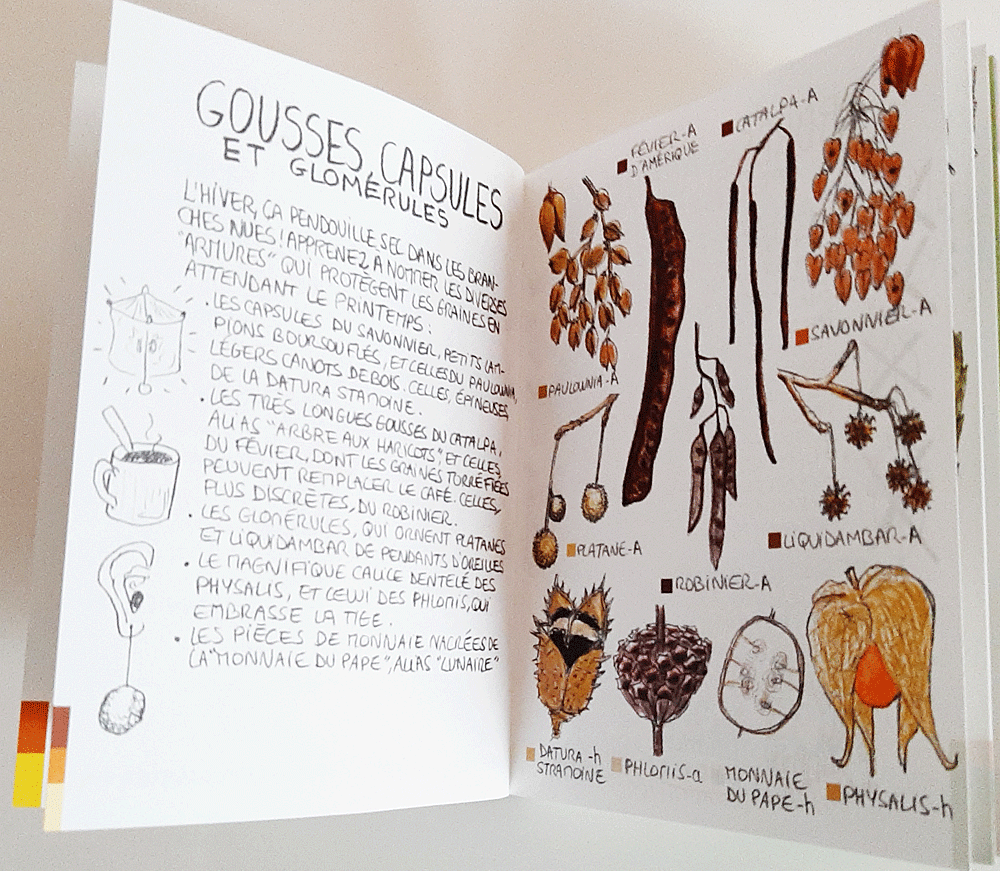 GOUSSES, CAPSULES
ET GLOMÉRULES
L'HIVER, ÇA PENDOUILLE SEC DANS LES BRAN-
CHES NUES! APPRENEZ A NOMMER LES DIVERSES
"ARMURES" QUI PROTÈGENT LES GRAINES EN
ATTENDANT LE PRINTEMPS :
. LES CAPSULES DU SAVONNIER, PETITS LAM-
PIONS BOURSOUFLÉS, ET CELLES DU PAULOWNIA,
LÉGERS CANOTS DE BOIS. CELLES, ÉPINEUSES,
DE LA DATURA STAMOINE.
. LES TRÈS LONGUES GOUSSES DU CATALPA,
ALIAS "ARBRE AUX HARICOTS" ET CELLES
DU FÉVIER, DONT LES GRAINES TORRÉFIÉES
PEUVENT REMPLACER LE CAFÉ. CELLES,
PLUS DISCRÈTES, DU ROBINIER.
. LES GLOMÉRULES, QUI ORNENT PLATANES
ET LIQUIDAMBAR DE PENDANTS D'OREILLES
. LE MAGNIFIQUE CALICE DENTELÉ DES
PHYSALIS, ET CELUI DES PHLOMIS, QUI
EMBRASSE LA TIGE.
. LES PIÈCES DE MONNAIE NACRÉES DE
LA "MONNAIE DU PAPE", ALIAS "LUNAIRE"
FÉVIER-A
D'AMÉRIQUE
CATALPA-A
SAVONNIER-A
PAULOWNIA-A
PLATANE-A
LIQUIDAMBAR-A
ROBINIER-A
DATURA-h
STRAMOINE
PHLOMIS-a
MONNAIE
DU PAPE-h
PHYSALIS-h